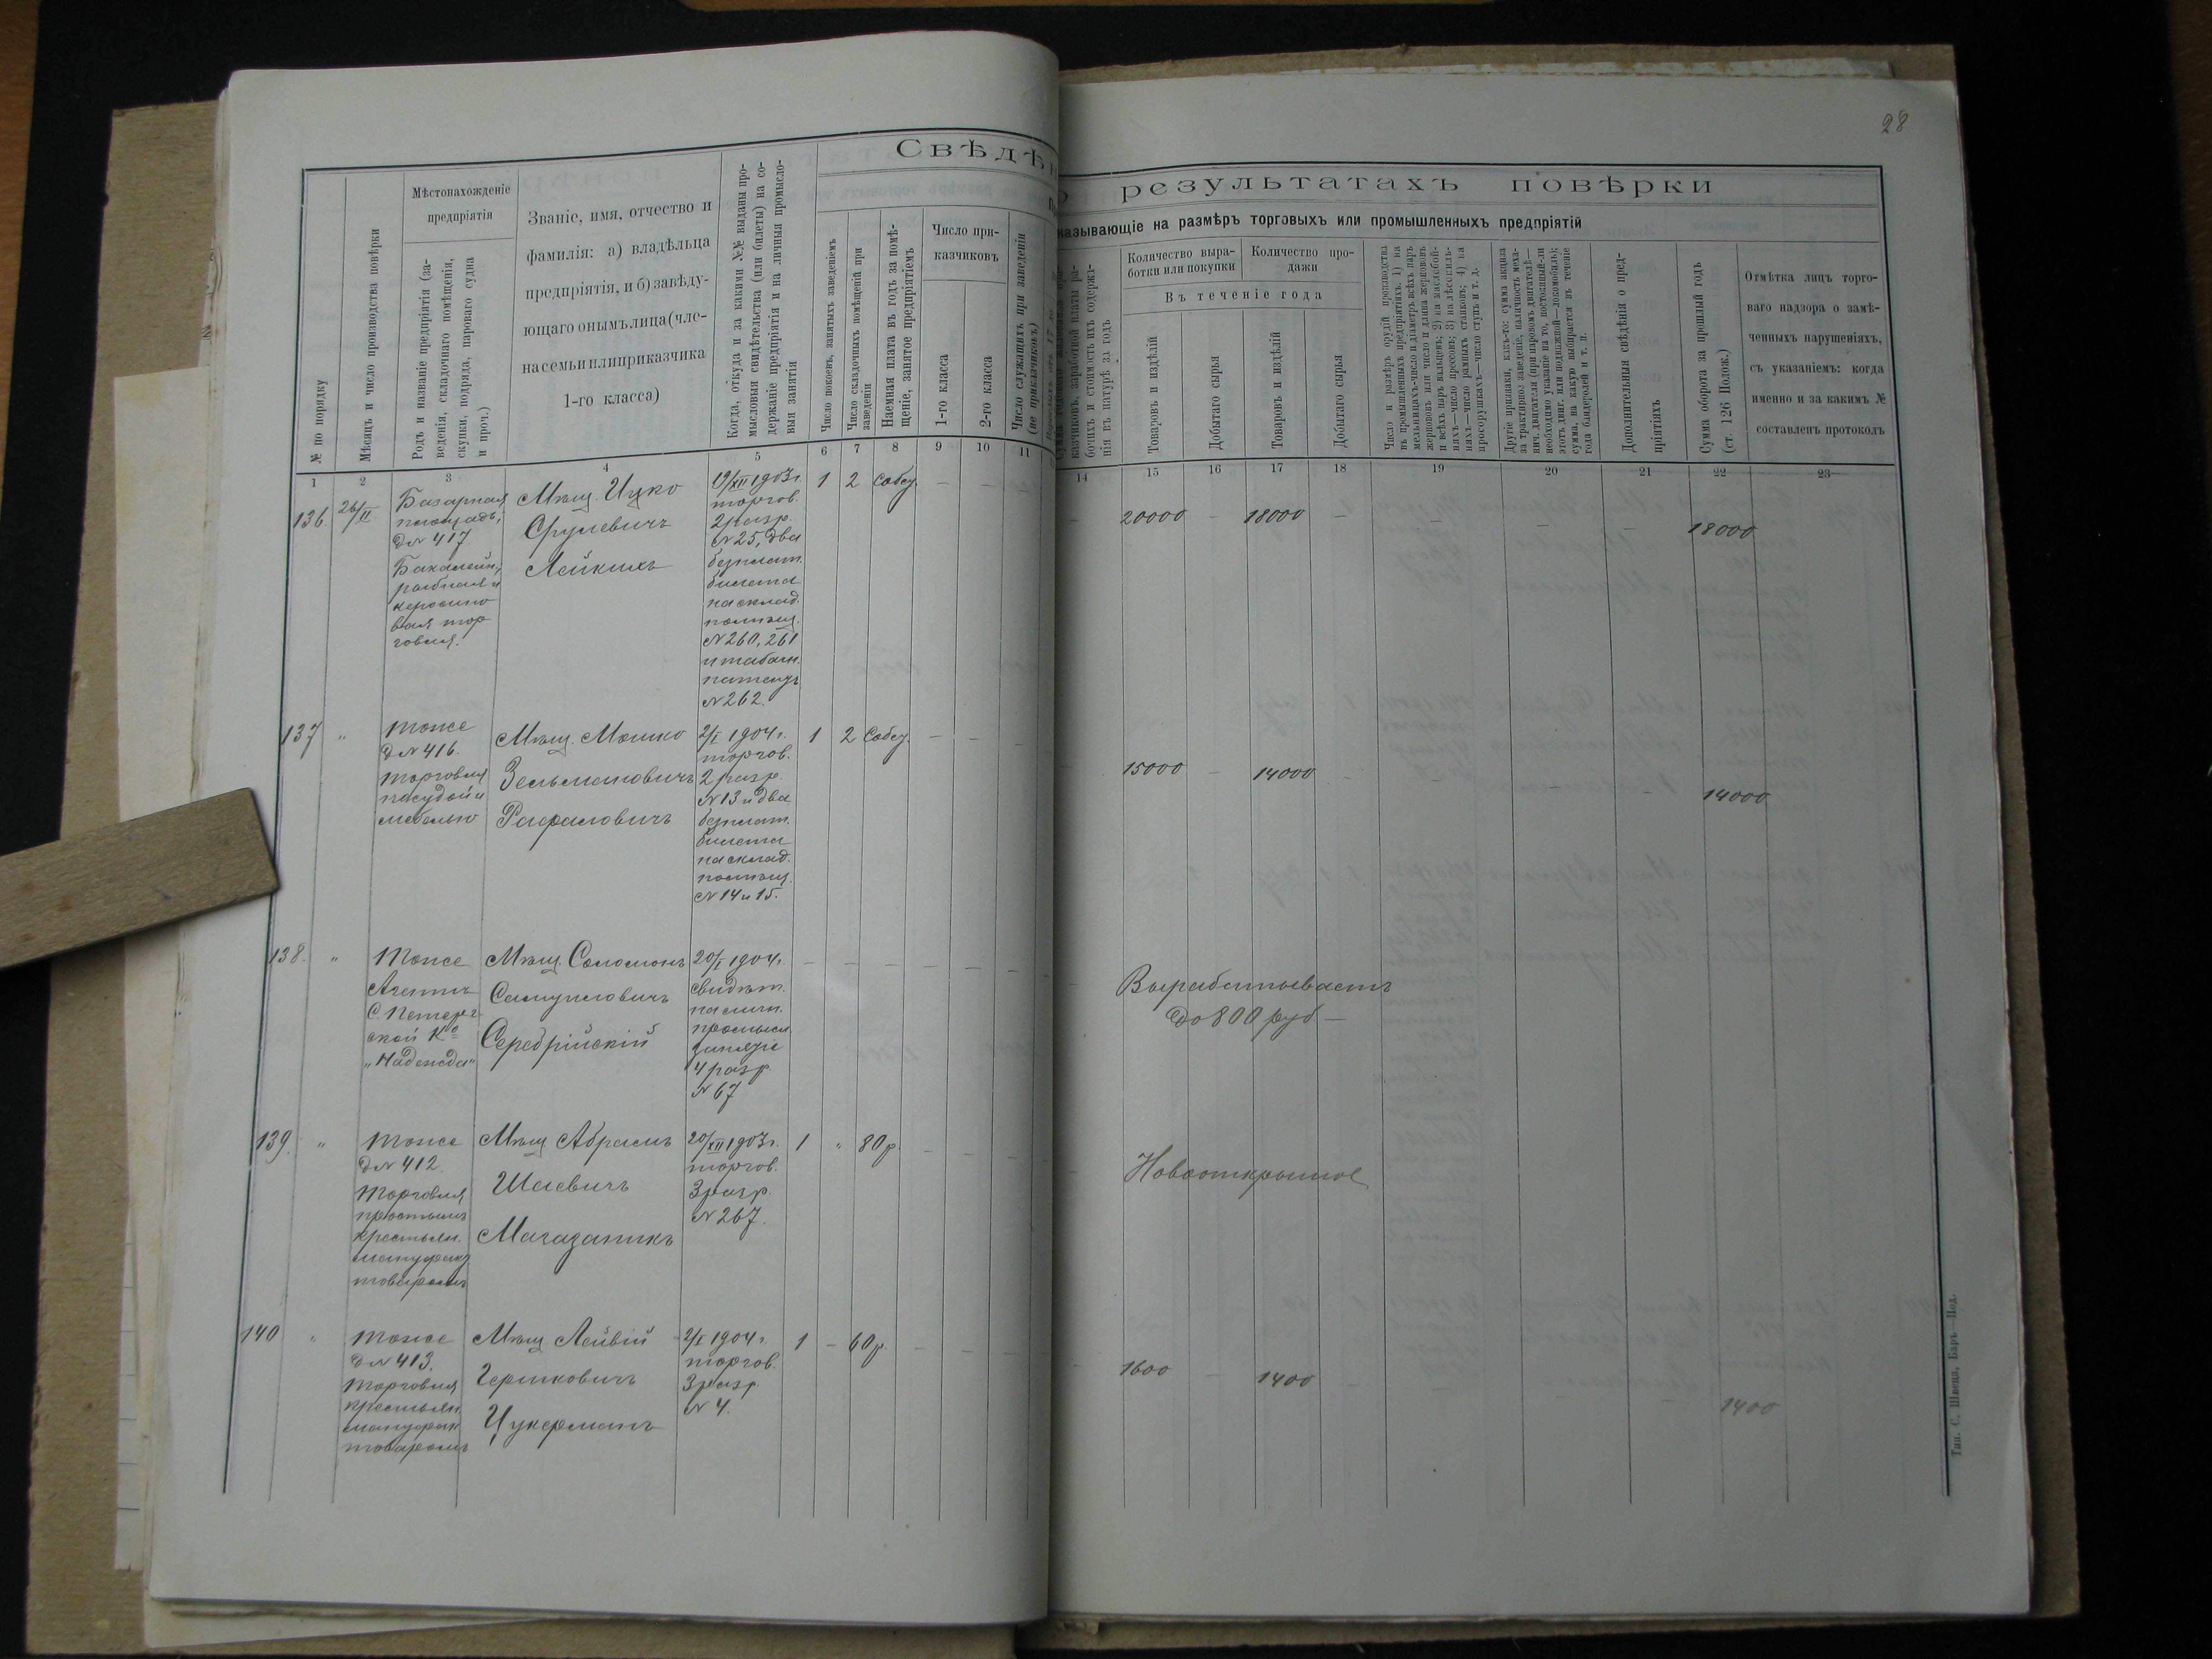 28
Свѣдѣн
о результатахъ повѣрки
казывающіе на размѣръ торговыхъ или промышленныхъ предпріятій
№ по порядку
Мѣсяцъ и число производства повѣрки
Мѣстонахожденіе
предпріятія
Родъ и названіе предпріятія (за-
веденія, складочнаго помѣщенія,
скупки, подряда, парового судна
и проч.)
Званіе, имя, отчество и
фамилія: а) владѣльца
предпріятія, и б) завѣду-
ющаго онымъ лица (чле-
на семьи или приказчика
1-го класса)
Когда, откуда и за какими №№ выданы про-
мысловыя свидѣтельства (или билеты) на со-
держаніе предпріятія и на личныя промысло-
выя занятія
Число покоевъ, занятыхъ заведеніемъ
Число складочныхъ помѣщеній при
заведеніи
Наемная плата въ годъ за помѣ-
щеніе, занятое предпріятіемъ
Число при-
казчиковъ
1-го класса
2-го класса
Число служащихъ при заведеніи
(не приказчиковъ)
казчиковъ, заработной платы ра-
бочихъ и стоимость ихъ содержа-
нія въ натурѣ за годъ
Количество выра-
ботки или покупки
Количество про-
дажи
Въ теченіе года
Товаровъ и издѣлій
Добытаго сырья
Товаровъ и издѣлій
Добытаго сырья
Число и размѣръ орудій производства
въ промышленныхъ предпріятіяхъ: 1) на
мельницахъ—число и діаметръ всѣхъ паръ
жернововъ или число и длина жернововъ
и всѣхъ паръ вальцевъ; 2) на маслобой-
няхъ—число прессовъ; 3) на лѣсопиль-
няхъ—число рамныхъ станковъ; 4) на
просорушкахъ—число ступъ и т. д.
Другіе признаки, какъ-то: сумма акциза
за трактирное заведеніе, наличность меха-
нич. двигателя (при паровомъ двигателѣ—
необходимо указаніе на то, постоянный-ли
этотъ двиг. или подвижной—локомобиль);
сумма, на какую выбирается въ теченіе
года бандеролей и т. п.
Дополнительныя свѣдѣнія о пред-
пріятіяхъ
Сумма оборота за прошлый годъ
(ст. 126 Полож.)
Отмѣтка лицъ торго-
ваго надзора о замѣ-
ченныхъ нарушеніяхъ,
съ указаніемъ: когда
именно и за какимъ №
составленъ протоколъ
1 2 3 4 5 6 7 8 9 10 11 14 15 16 17 18 19 20 21 22 23
136. 26/II
Базарная
площадь,
д № 417
Бакалейн.,
рыбная и
керосино
вая тор
говля.
Мѣщ. Ицко
Срулевичъ
Лейкихъ
19/XII 1903 г.
торгов.
2 разр.
№ 25, два
безплат.
билета
на склад.
помѣщ.
№ 260, 261
и табачн.
патентъ
№ 262.
1 2 Собст. — —
— 20000 — 18000 — — — — 18000
137 "
Тоже
д № 416.
Торговля
посудой и
мебелью
Мѣщ. Мошко
Зельмановичъ
Рафаловичъ
2/I 1904 г.
торгов.
2 разр.
№ 13 и два
безплат.
билета
на склад.
помѣщ.
№ 14 и 15.
1 2 Собст. — — —
— 15000 — 14000 — — — — 14000
138. "
Тоже
Агентъ
С. Петерг
ской Ко
„Надежда"
Мѣщ. Соломонъ
Самуиловичъ
Середрійскій
20/I 1904 г.
свидѣт.
на личн.
промысл.
занятіе
4 разр
№ 67
— — — — — —
Вырабатываетъ
до 800 руб —
139. "
Тоже
д № 412.
Торговля
простымъ
крестьян.
мануфакт
товаромъ
Мѣщ Абрамъ
Шаевичъ
Магазаникъ
20/XII 1903 г.
торгов.
3 разр.
№ 267.
1 " 80 р. — — —
Новооткрытое
140 "
Тоже
д № 413.
Торговля
крестьян.
мануфак
товаромъ
Мѣщ. Лейвій
Гершковичъ
Цукерманъ
2/I 1904 г.
торгов.
3 разр
№ 4.
1 — 60 р. — — —
— 1600 — 1400 — — — — 1400
Тип. С. Швеца, Баръ—Под.